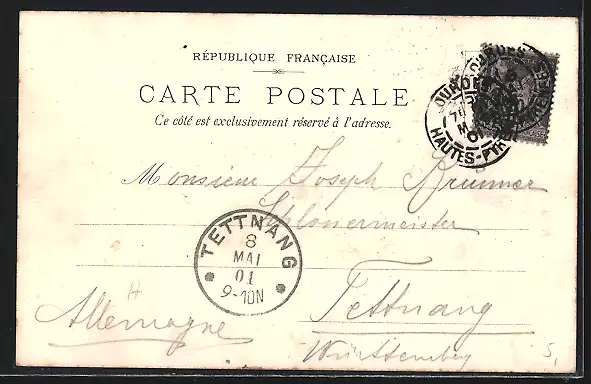 RÉPUBLIQUE FRANÇAISE
CARTE POSTALE
Ce côté est exclusivement réservé à l'adresse.
LOURDES
HAUTES-PYR
Monsieur Joseph Brunner
TETTNANG
8
MAI
01
9-10N
Tettnang
Allemagne
Württemberg